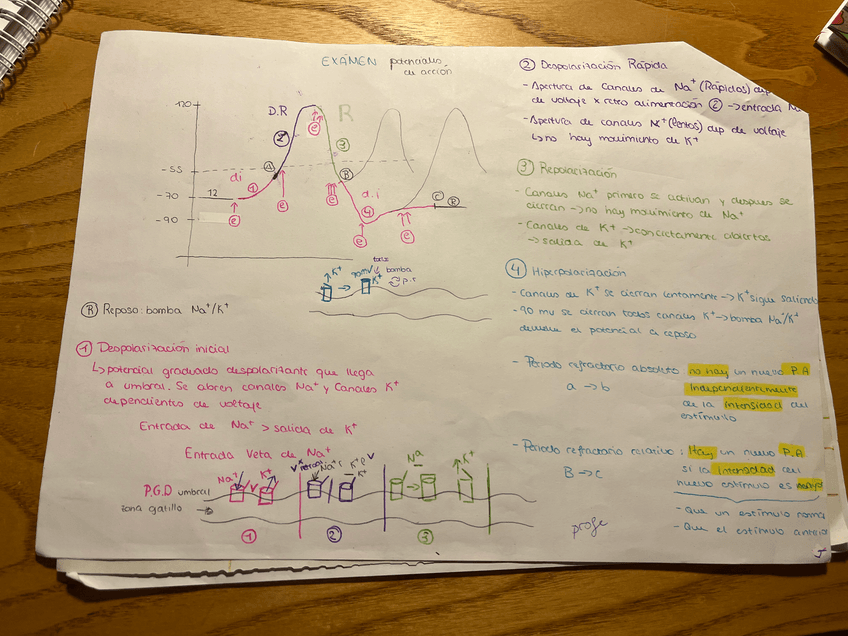 EXÁMEN potenciales
de acción
120
D.R
R
2
3
-55
A
B
di
1
e
e
e
e
-70
12
d.i
4
C
R
-90
e
e
K+
90mv
K+
bomba
R Reposo: bomba Na+/K+
1 Despolarización inicial
↳potencial graduado despolarizante que llega
a umbral. Se abren canales Na+ y canales K+
dependientes de voltaje
Entrada de Na+ > salida de K+
Entrada Neta de Na+
Na+
K+
Na+
K+
K+
Na
K+
P.G.D umbral
zona gatillo
1
2
3
2 Despolarización Rápida
- Apertura de canales de Na+ (Rápidos) dep
de voltaje x retro alimentación + → entrada Na
- Apertura de canales K+ (lentos) dep de voltaje
↳ no hay movimiento de K+
3 Repolarización
- Canales Na+ primero se activan y despues se
cierran → no hay movimiento de Na+
- Canales de K+ → abiertos
→ salida de K+
4 Hiperpolarización
- Canales de K+ se cierran lentamente → K+ sigue saliendo
- 90 mv se cierran todos canales K+ → bomba Na+/K+
el potencial a reposo
- Periodo refractario absoluto no hay un nuevo P.A
a → b
Independientemente
de la intensidad del
estímulo
- Periodo refractario relativo: Hay un nuevo P.A
B → c
si la intensidad del
nuevo estímulo es mayor
- Que un estímulo norma
- Que el estímulo anterio
profe